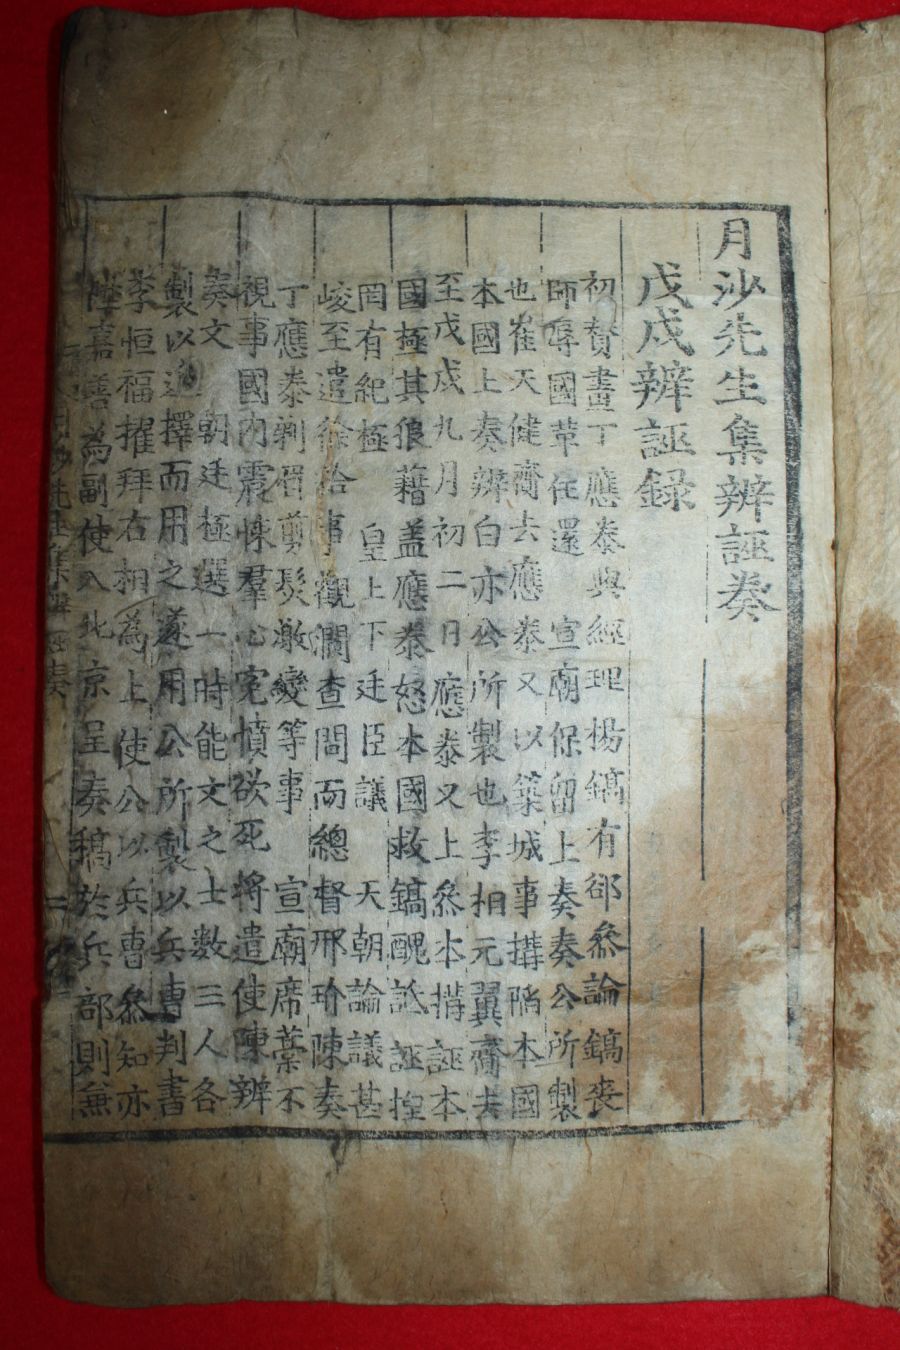 月沙先生集辨誣奏
戊戌辨誣録
初賛畫丁應泰與經理楊鎬有郤叅論鎬喪
師辱國葦往還 宣廟保留上奏奏公所製
也崔天健賫去應泰又以築城事搆陷本國
本國上奏辨白亦公所製也李相元翼賫去
至戊戌九月初二日應泰又上叅本搆誣本
國極其狼藉盖應泰怒本國救鎬醜詆誣揑
罔有紀極 皇上下廷臣議 天朝論議甚
峻至遣徐給事觀瀾查問而總督邢玠陳奏
丁應泰剃眉剪髮激變等事 宣廟席藁不
視事國內震悚羣心寃憤欲死將遣使陳辨
奏文 朝廷極選一時能文之士數三人各
製以進擇而用之遂用公所製以兵曹判書
李恒福擢拜右相為上使公以兵曹叅知亦
陞嘉善為副使入北京呈奏稿於兵部則兼
月沙先生集辨誣奏 一